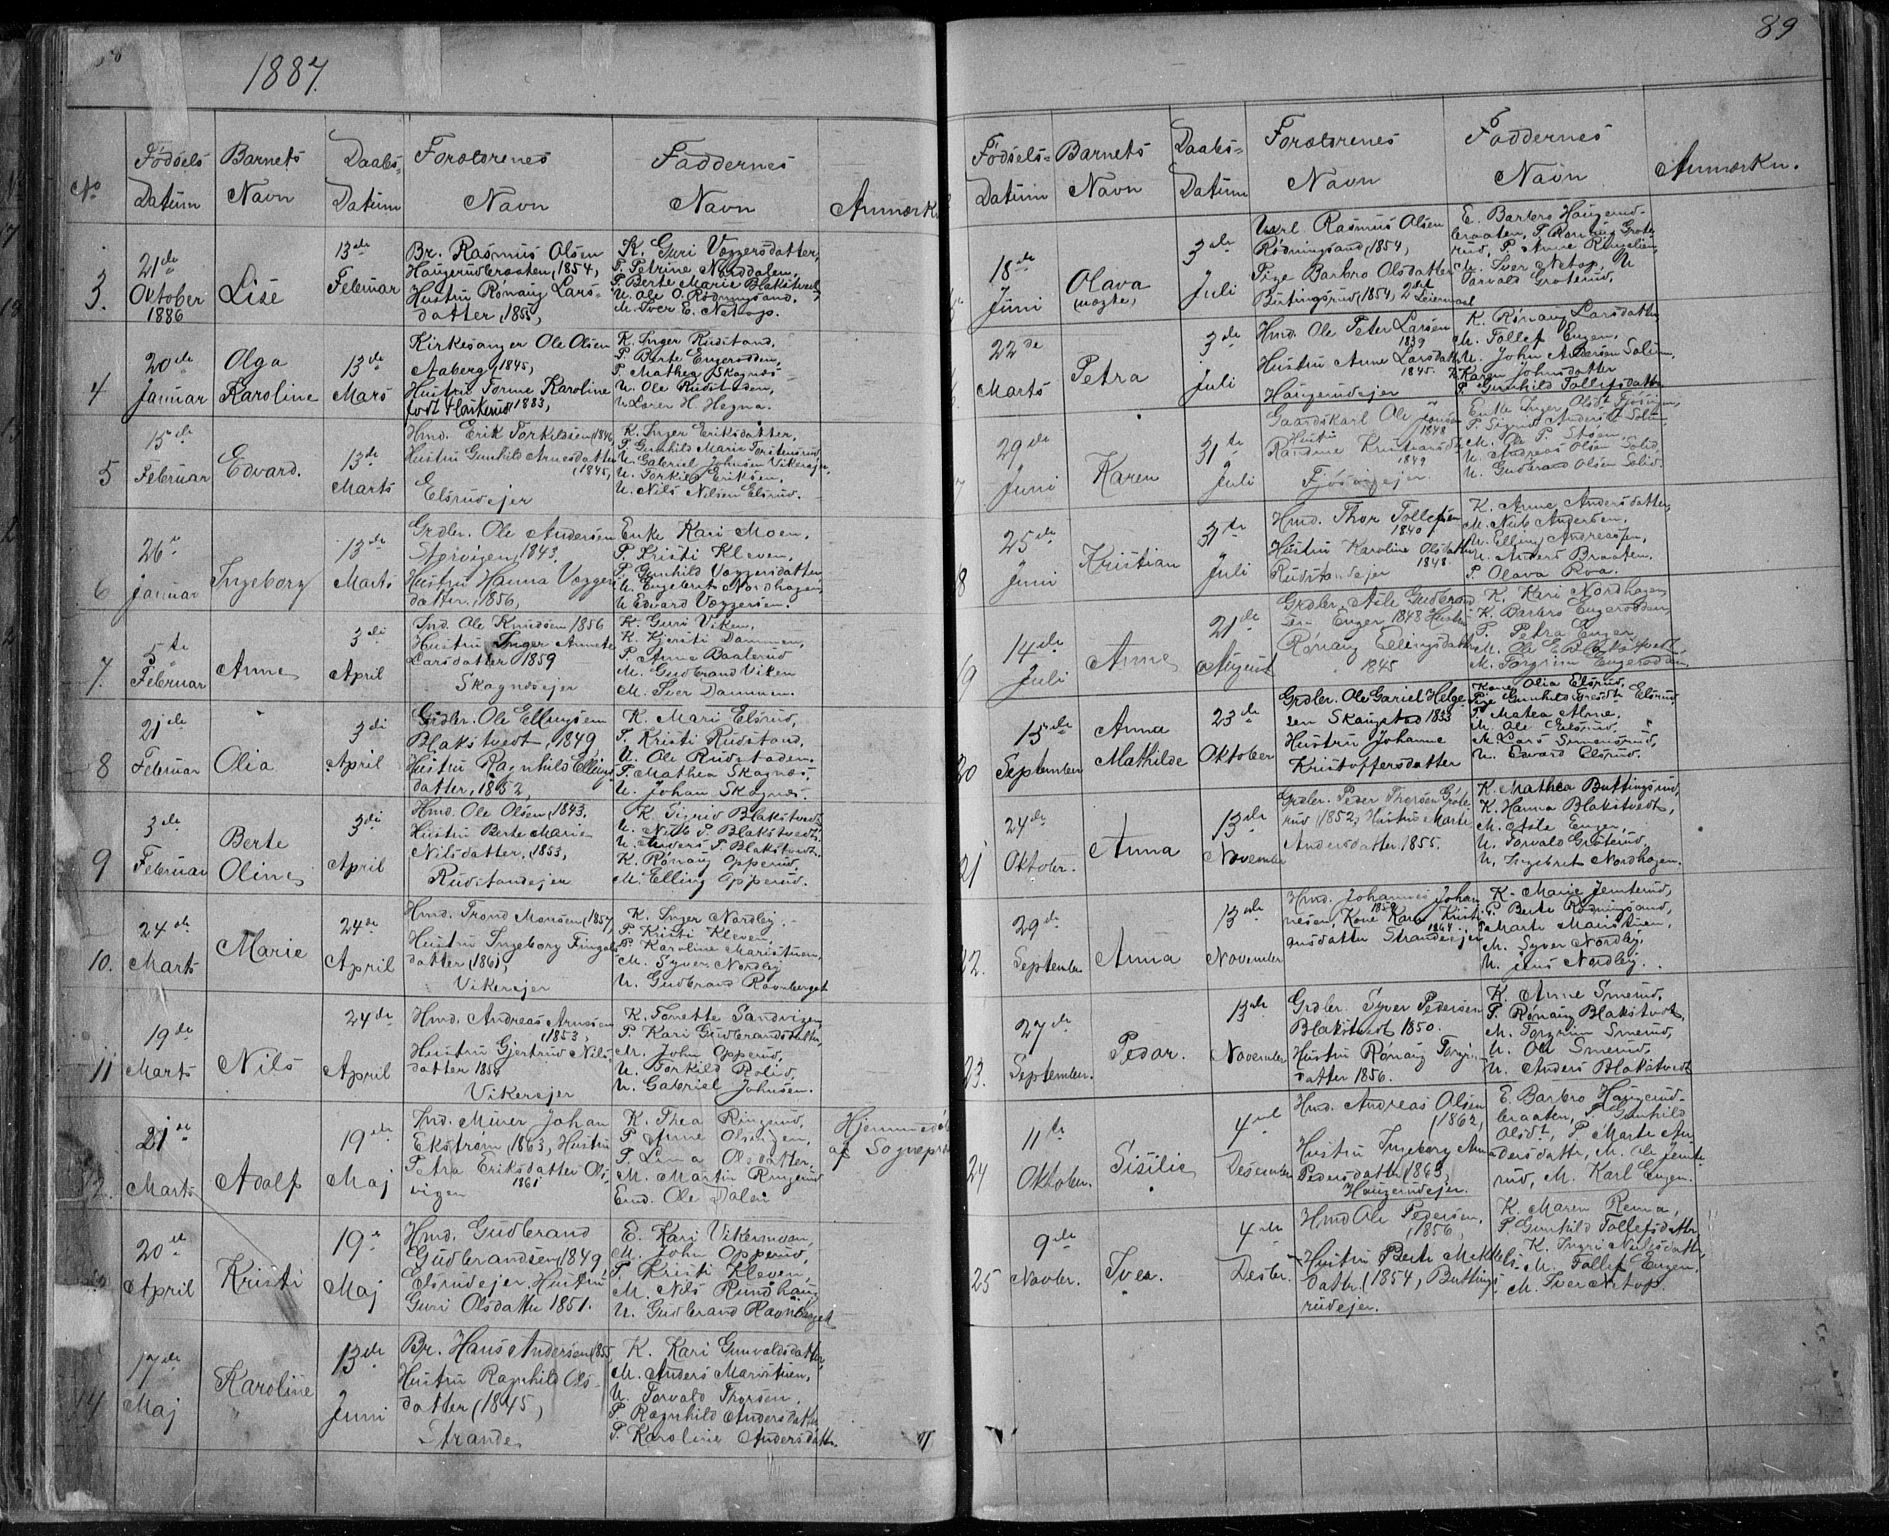 1887.
No
Fødsels Datum
Barnets Navn
Daabs- Datum
Forældrenes Navn
Faddernes Navn
Anmærk
3.
21de Oktober 1886
Lise
13de Februar
Br. Rasmus Olsen
Haugerudbraaten, 1854,
Hustru Rønaug Lars-
datter, 1855,
K. Guri Væggersdatter,
P. Petrine Norddalen,
P. Berte Marie Blakstvedt,
U. Ole O. Rødningsand,
M. Iver E. Netop.
4
20de Januar
Olga Karoline
13de Mars
Kirkesanger Ole Olsen
Aaberg, 1845,
Hustru Torine Karoline
født Haskerud, 1853,
K. Inger Rudstand,
P. Berte Engerodden,
P. Mathea Skagnæs
U. Ole Rudstaden,
U. Loren H. Hegna.
5
15de Februar
Edvard.
13de Marts
Hmd. Erik Torkildsen, 1846,
Hustru Gunhild Arnesdatter
(1845,
Elsrudejer
K. Inger Eriksdatter,
P. Gunhild Marie Torstensrud,
U. Gabriel Johnsen Vikersejer,
U. Torkild Eriksen,
U. Nils Nilsen Elsrud.
6
26de Januar
Ingeborg
13de Marts
Grdbr. Ole Andersen
Størvigen, 1843.
Hustru Hanna Væggers
datter, 1856,
Enke Kari Moen,
P. Kristi Kleven,
P. Gunhild Væggersdatter
U. Engebret Nordhagen,
U. Edvard Væggersen.
7.
5te Februar
Anne
3di April
Ind. Ole Knudsen 1856
Hustru Inger Annete
Larsdatter 1859
Skagnæsejer
K. Guri Viken,
K. Kjersti Dammen,
P. Anne Baalerud
M. Gudbrand Viken
M. Iver Dammen.
8
21de Februar
Olia
3di April
Grdbr. Ole Ellingsen
Blakstvedt, 1849,
Hustru Ragnhild Ellings
datter, 1852,
K. Mari Elsrud,
P. Kristi Rudstand,
U. Ole Rudstaden.
P. Mathea Skagnæs,
U. Johan Skagnæs.
9
3de Februar
Berte Oline
3di April
Hmd. Ole Olsen, 1843.
Hustru Berte Marie
Nilsdatter, 1853,
Rudstandejer
K. Sigrid Blakstvedt
U. Nils P. Blakstvedt,
U. Anders P. Blakstvedt.
K. Rønaug Opperud,
M. Elling Opperud.
10.
24de Marts
Marie
24de April
Hmd. Trond Monsen, 1854,
Hustru Ingeborg Fingals
datter (1861,
Vikerejer
K. Inger Nordby.
P. Kristi Kleven,
P. Karoline Maristuen,
M. Syver Nordby
U. Gudbrand Ravnberget
11
19de Marts
Nils
24de April
Hmd. Andreas Arnesen
1853,
Hustru Gjertrud Nils
datter 1858
Vikerejer
K. Tonette Sandvigen
P. Kari Gudbrandsdatter,
M. John Opperud,
U. Torkild Rolid,
U. Gabriel Johnsen.
21de Marts
Adolf
19de Maj
Ind. Murer Johan
Ekstrøm, 1863, Hustru
Petra Eriksdatter Ols-
vigen 1861
K. Thea Ringerud,
P. Anne Olsengen,
P. Lina Olsdatter,
M. Martin Ringerud
Emd. Ole Dalen
Hjemmedøbt
af Sogneprest
20de April
Kristi
19de Maj
Hmd. Gudbrand
Gudbrandsen, 1849,
Elsrudejer, Hustru
Guri Olsdatter 1851.
E. Kari Vikermoen,
M. John Opperud,
P. Kristi Kleven,
M. Nils Rundhaug
U. Gudbrand Ravnberget
14
17de Maj
Karoline
13de Juni
Br. Hans Andersen, 1855,
Hustru Ragnhild Ols-
datter (1845,
Strande
K. Kari Gunvaldsdatter,
M. Anders Maristuen,
U. Torvald Thorsen,
P. Ragnhild Andersdatter
P. Karoline Andersdatter.
89
Fødsels- Datum
Barnets Navn
Daabs- Datum
Forældrenes Navn
Faddernes Navn
Anmærkn.
18de Juni
Olava
(uægte,
3de Juli
Ukarl Rasmus Olsen
Rødningsand, 1854,
Pige Barbro Olsdatter
Buttingsrud, 1854, 2det Leiermaal
E. Barbro Haugerud-
braaten, P. Rønaug Grote-
rud, P. Anne Ringelien,
M. Iver Netop, U
Torvald Groterud,
22de Marts
Petra
3de Juli
Hmd. Ole Peter Larsen
1839
Hustru Anne Larsdatter
1845.
Haugerudejer
K. Rønaug Larsdatter,
M. Tollef Engen,
U. John Andersen Solum,
K. Karen Johnsdatter
P. Gunhild Tollefsdatter
29de Juni
Karen
31te Juli
Gaardskarl Ole Jonsen
Hustru 1848
Randine Kristiansdtr
1849
Fjøsvigejer
Enke Inger Olsdt. Fjøsvigen,
P. Sigrid Andersdt. Solum,
M. Ole P. Støen,
U. Andreas Olsen Solid,
U. Gudbrand Olsen Solid.
8
25de Juni
Kristian
31te Juli
Hmd. Thor Tollefsen
1840
Hustru Karoline Olsdatter
1848.
Rudstandejer
K. Anne Andersdatter
M. Nils Andersen,
U. Elling Andreassen,
U. Anders Braaten.
P. Olava Roa.
9
14de Juli
Anne
21de August
Grdbr. Asle Gudbrand
sen Enger 1848 Hustru
Rønaug Ellingsdatter
1845
K. Kari Nordhagen
K. Barbro Engerodden,
P. Petra Enger
M. Ole E. Blakstvedt
M. Torgrim Engerodden,
20
15de September
Anna Mathilde
23de Oktober
Grdbr. Ole Gariel Helge
sen Skaugstad 1833
Hustru Johanne
Kristoffersdatter
Kone Olia Elsrud,
Pige Gunhild Elsrud,
P. Matea Alme,
M. Ole Elsrud,
M. Lars Simensrud,
U. Edvard Elsrud.
21
24de Oktober.
Anna
13de November
Grdbr. Peder Thorsen Grøte
rud, 1852, Hustru Marte
Andersdatter 1855.
K. Mathea Buttingsrud,
K. Hanna Blakstvedt,
M. Asle Enger,
U. Torvald Grøterud,
U. Ingebret Nordhagen.
22.
29de September
Anna
13de November
Hmd. Johannes Johan
nesen, 1859 Kone Karen Kristi
ansdatter 1864 Strandejer
K. Marie Jemterud,
P. Berte Rødningsand,
P. Marte Maristuen,
M. Syver Nordby,
U. Jens Nordby.
23.
27de September.
Peder.
13de November
Grdbr. Syver Pedersen
Blakstvedt 1850.
Hustru Rønaug Torgrims
datter 1856.
K. Anne Smerud,
P. Rønaug Blakstvedt,
M. Torgrim Smerud,
U. Ole Smerud,
U. Anders Blakstvedt
24
11te Oktober.
Sisilie
4de Desember
Hmd. Andreas Olsen
(1862,
Hustru Ingeborg Anne
Pedersdatter (1863,
Haugerudejer.
E. Barbro Haugerud-
braaten, P. Gunhild
Olsdt, P. Marte An-
dersdatter, M. Ole Jemte
rud, M. Karl Engen.
25
9de Novbr.
Iver.
4de Desbr.
Hmd Ole Pedersen,
(1856,
Hustru Berte Mikkels-
datter (1854, Buttings-
rudejer.
K. Maren Rema,
P. Gunhild Tollefsdatter
K. Ingri Nielsdatter,
M. Tollef Engen,
M. Iver Netop.